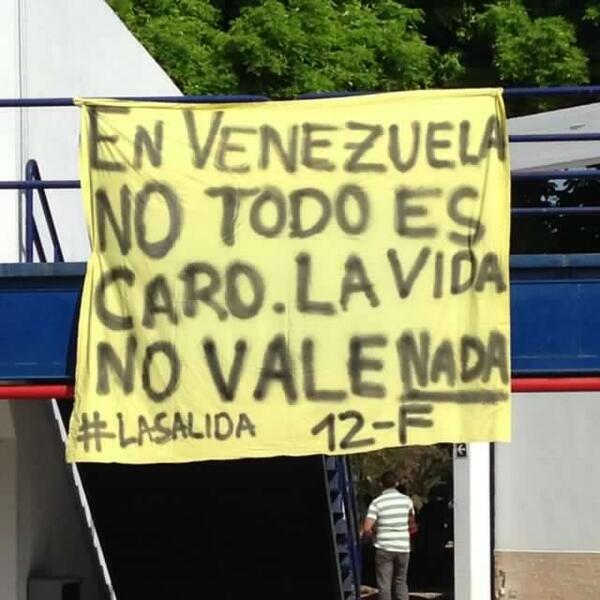 EN VENEZUELA
NO TODO ES
CARO. LA VIDA
NO VALE NADA
#LASALIDA 12-F